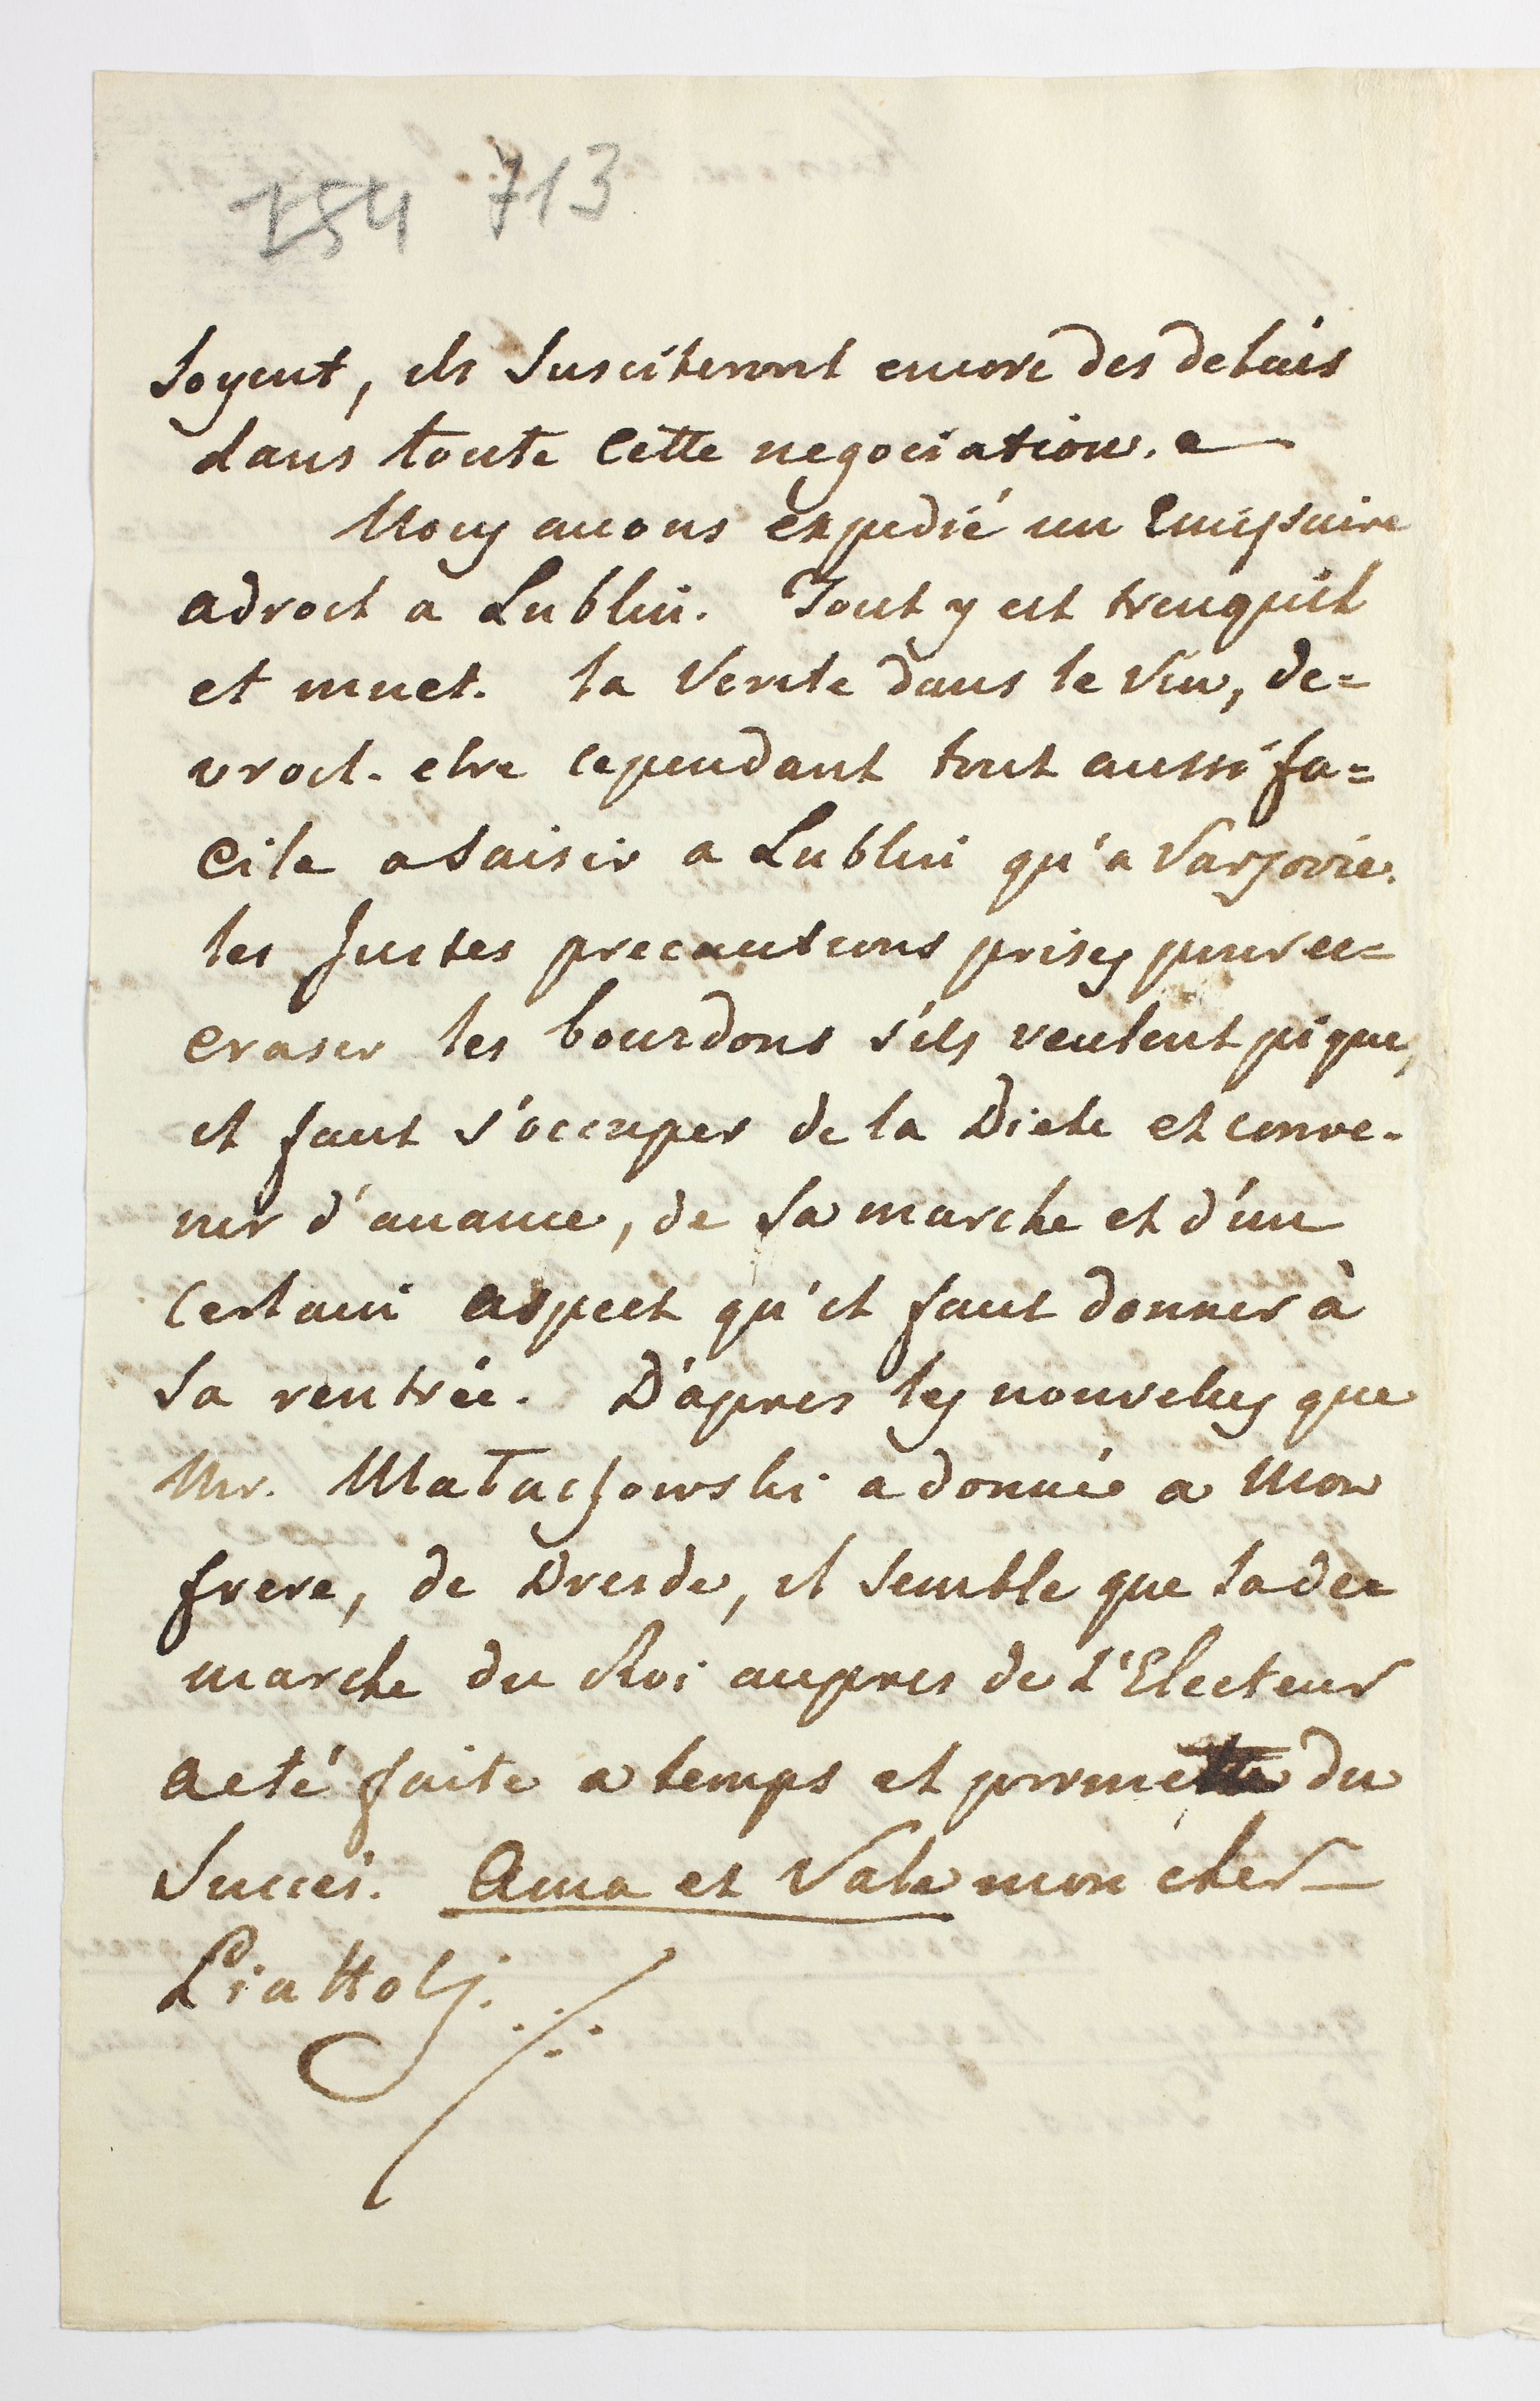 154 713
soyent, ils susciteront encore des delais
dans toute cette negociation. e
Nous avons expedié un Emissaire
adroit a Lublin. Tout y est tranquil
et muet. la Verite dans le Vin, de=
vroit etre cependant tout aussi fa=
cile a saisir a Lublin qu'a Varsovie.
les Justes precautions prises pour ec=
craser les bourdons s'ils veulent piquer,
il faut s'occuper de la Diete et conve-
nir d'avance, de sa marche et d'un
certain aspect qu'il faut donner à
sa rentrée. D'apres les nouvelles que
Mr. Małachowski a donnée a Mon
frere, de Dresde, il semble que la de=
marche du Roi aupres de L'Electeur
a eté faite a temps et promette du
Succés. Ama et Vale mon cher
Piattoli.